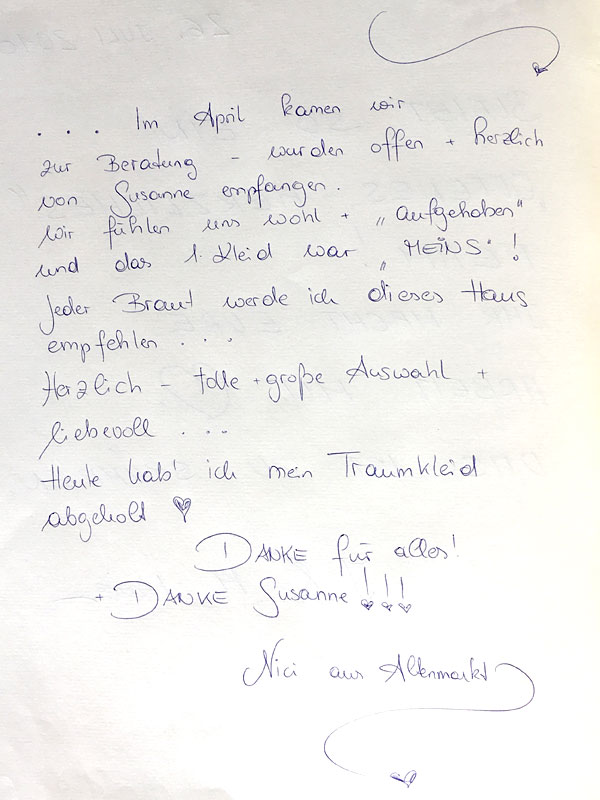 . . . Im April kamen wir
zur Beratung – wurden offen + herzlich
von Susanne empfangen.
Wir fühlen uns wohl + „aufgehoben"
und das 1. Kleid war „MEINS"!
Jeder Braut werde ich dieses Haus
empfehlen . . .
Herzlich – tolle + große Auswahl +
liebevoll . . .
Heute hab' ich mein Traumkleid
abgeholt ♥
DANKE für alles!
+ DANKE Susanne!!!
Nici aus Altenmarkt